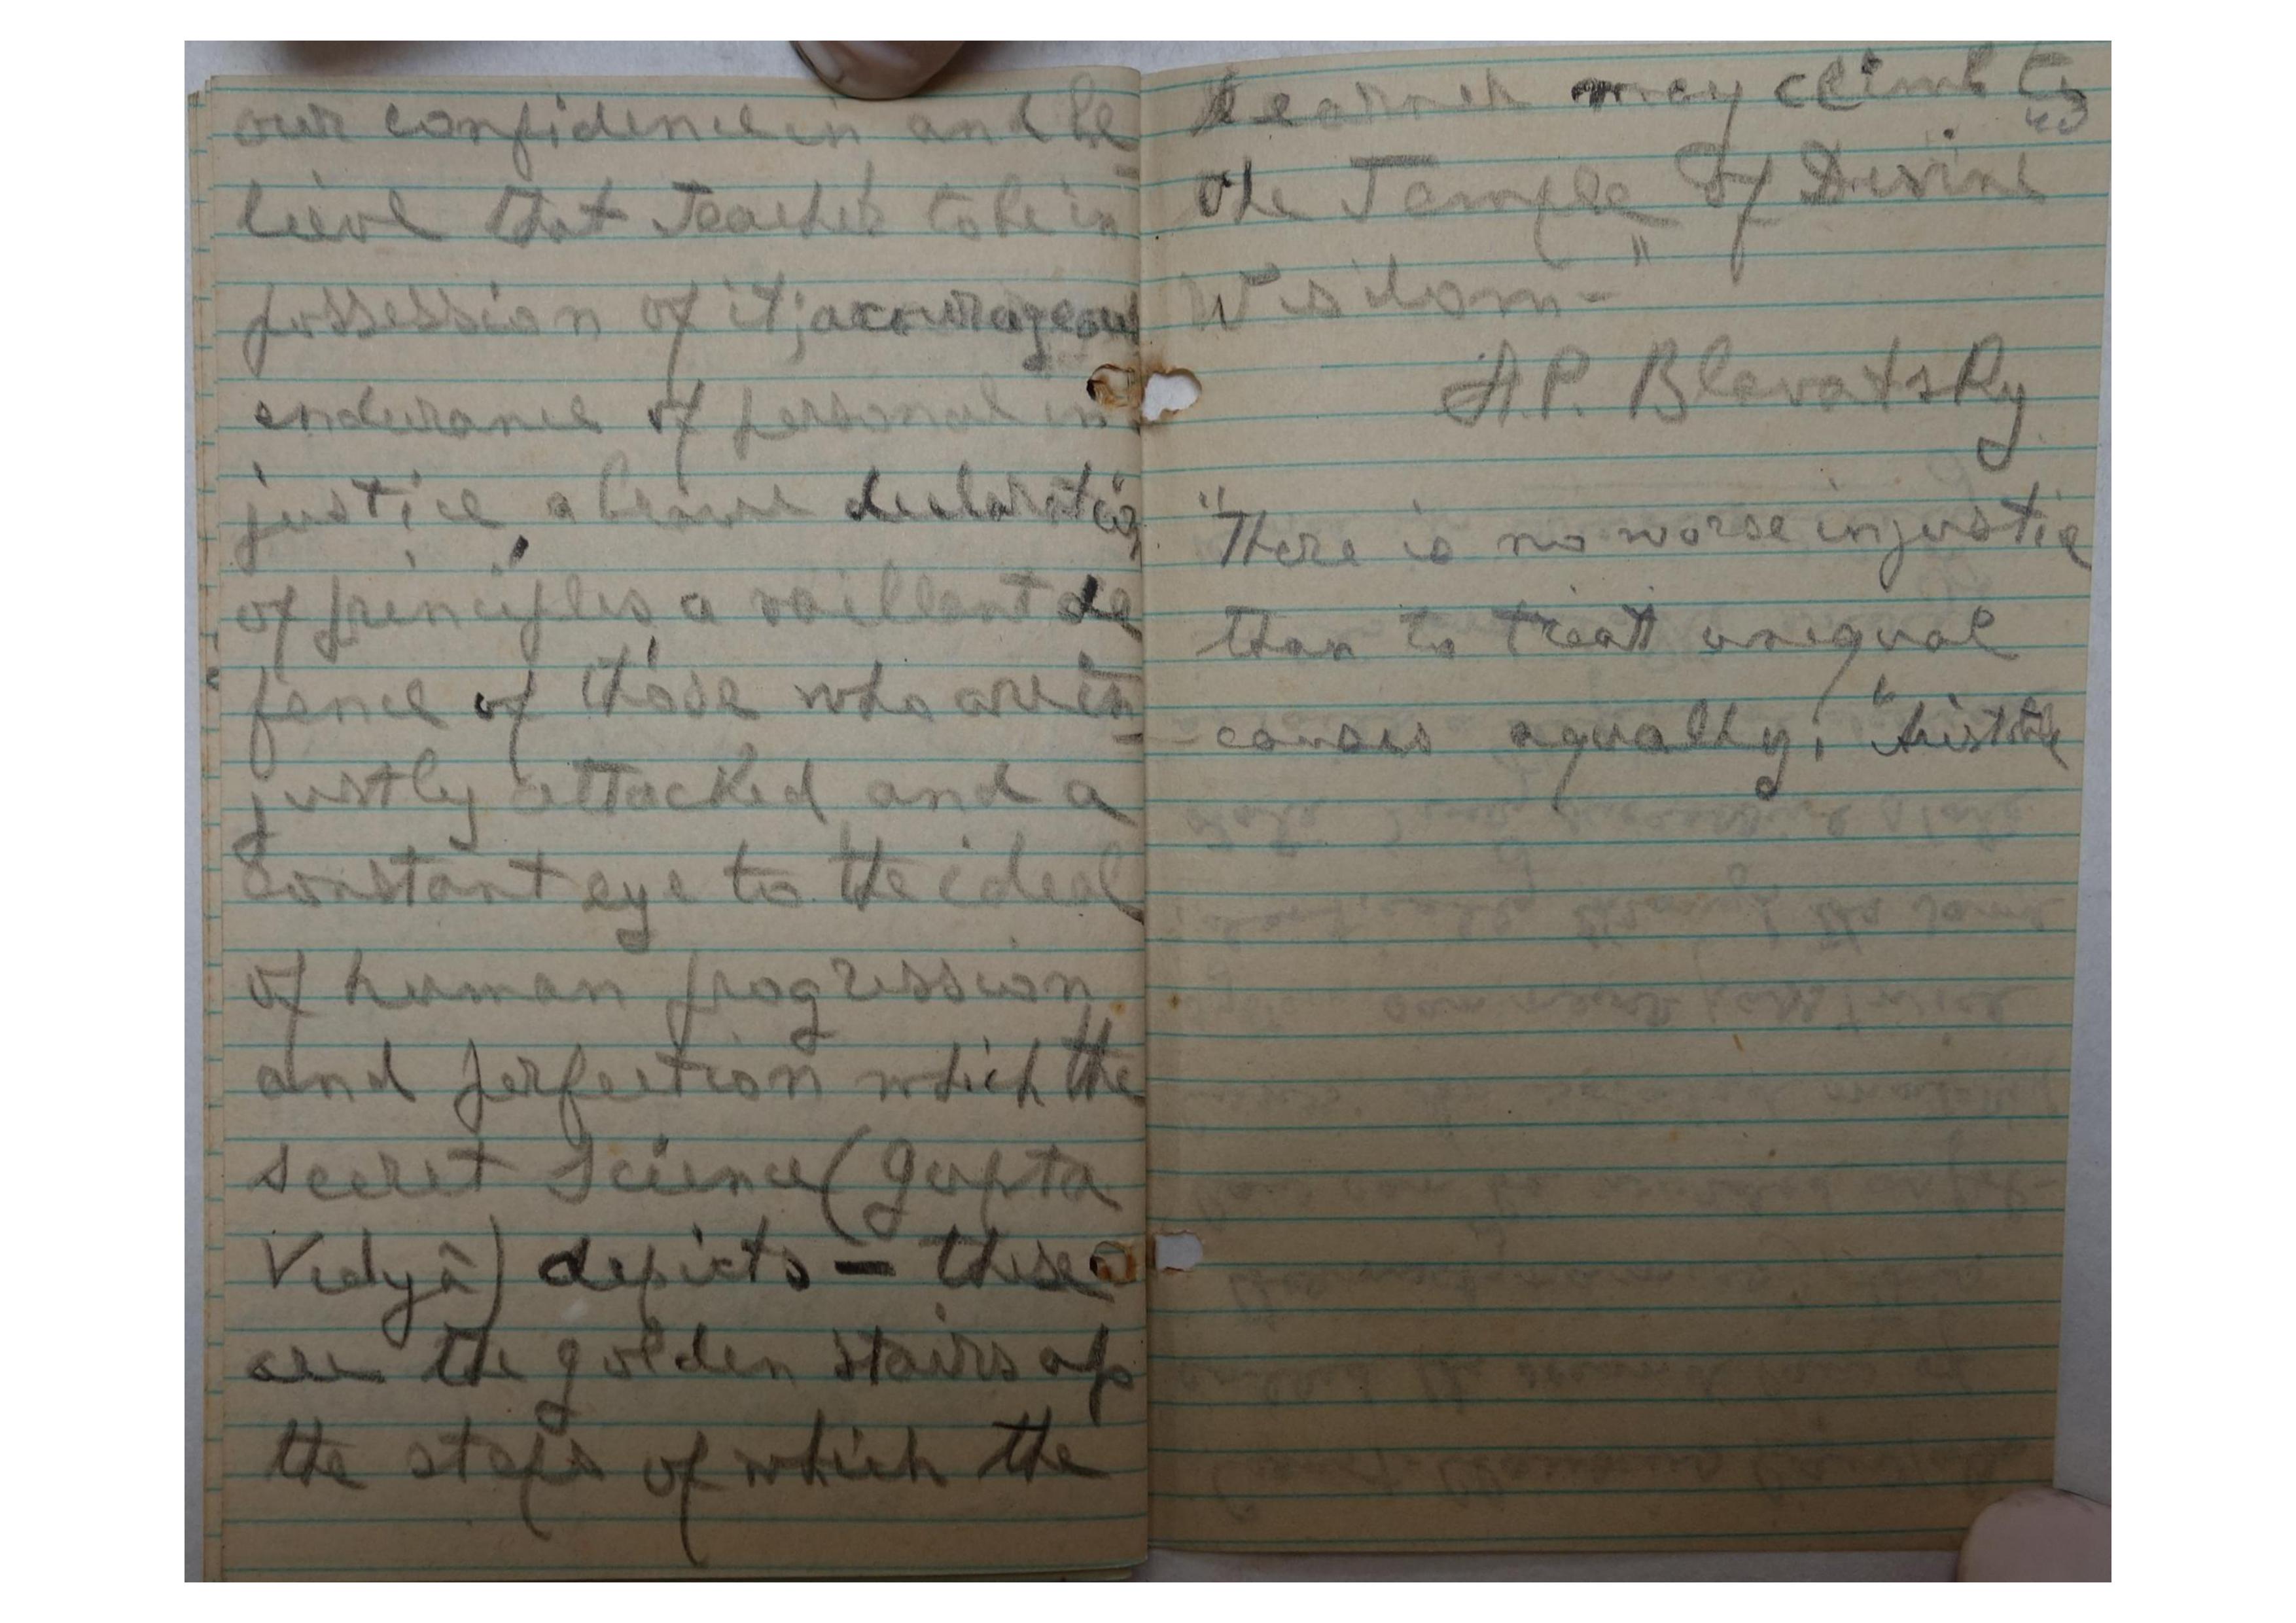 our confidence in and be-
lieve that Teacher to be in
possession of it; a courageous
endurance of personal in-
justice, a brave declaration
of principles a vaillant de
fence of those who are un-
justly attacked and a
constant eye to the ideal
of human progression
and perfection which the
secret Science (Gupta
Vidyâ) depicts — these
are the golden stairs up
the steps of which the
Learner may climb to
the Temple of Divine
Wisdom - "
H.P. Blavatsky
"There is no worse injustice
than to treat unequal
causes equally; " Aristotle